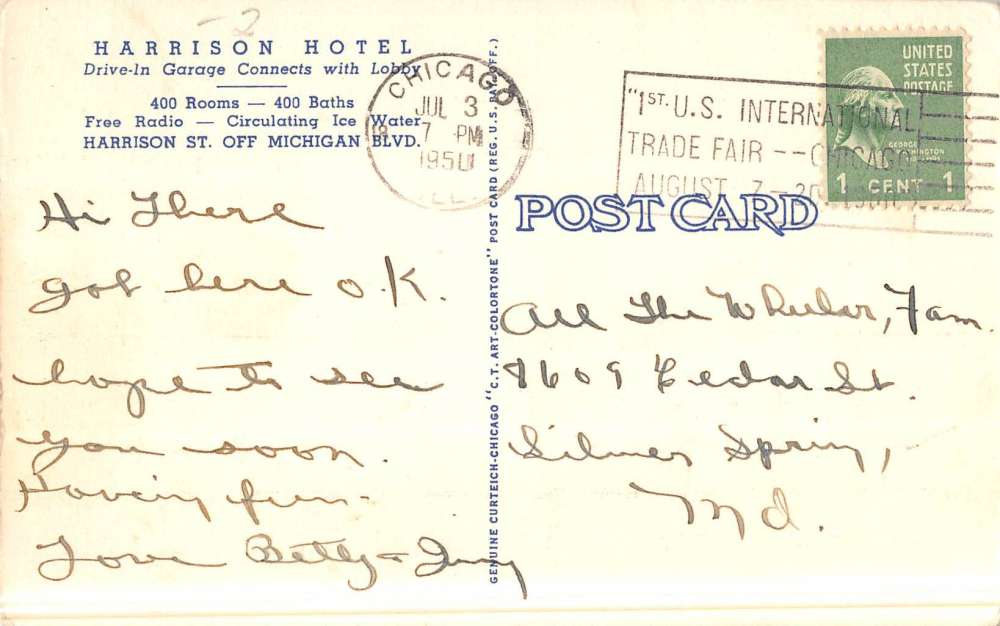 -2
HARRISON HOTEL
Drive-In Garage Connects with Lobby
400 Rooms — 400 Baths
Free Radio — Circulating Ice Water
HARRISON ST. OFF MICHIGAN BLVD.
CHICAGO
JUL 3
7 PM
1950
ILL.
"1ST. U.S. INTERNATIONAL
TRADE FAIR -- CHICAGO
AUGUST 7 - 20
UNITED
STATES
POSTAGE
GEORGE
WASHINGTON
1 CENT 1
POST CARD
GENUINE CURTEICH-CHICAGO "C.T. ART-COLORTONE" POST CARD (REG. U.S. PAT. OFF.)
Hi There
got here O.K.
hope to see
you soon.
Having fun-
Love Betty &
All The Wheeler, Fam.
1609 Cedar St.
Silver Spring,
Md.